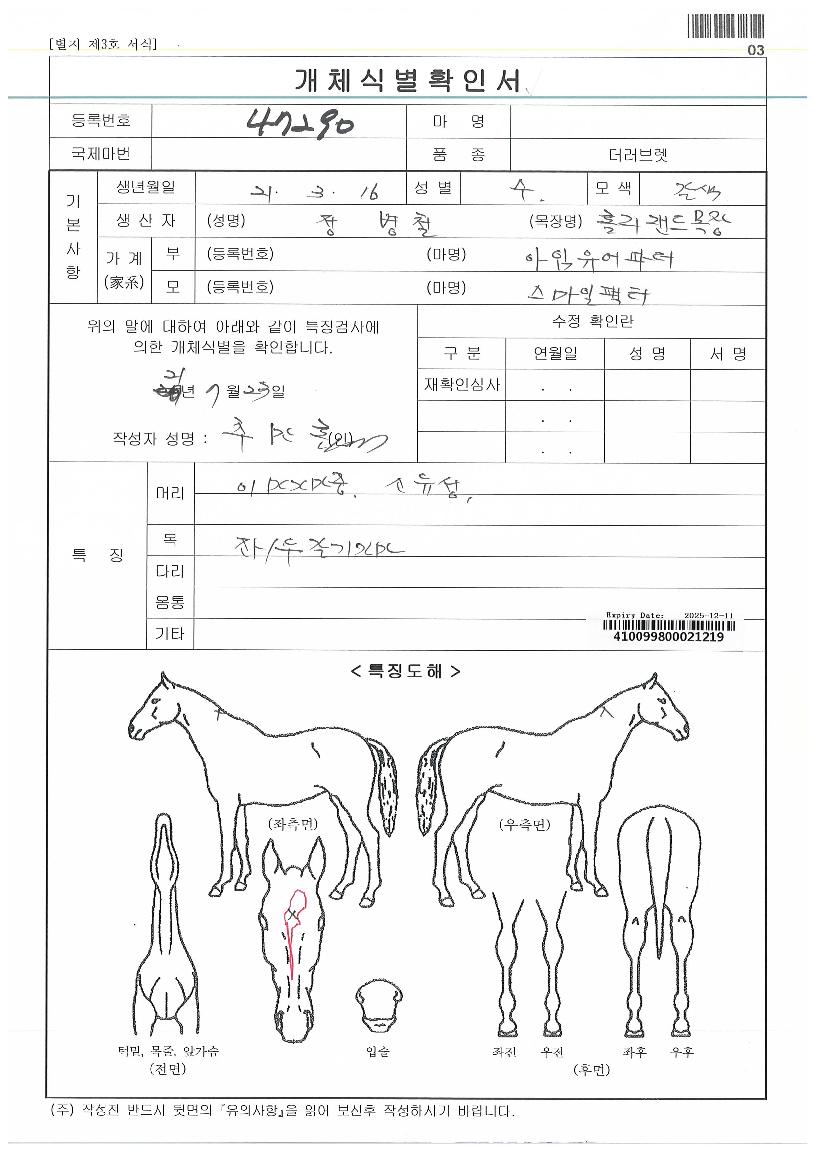 [별지 제3호 서식]
03
개체식별확인서
등록번호 47290 마 명
국제마번 품 종 더러브렛
기본사항
생년월일 21. 3. 16 성 별 수. 모 색 갈색
생 산 자 (성명) 장 병 철 (목장명) 홀리랜드목장
가 계 (家系)
부 (등록번호) (마명) 아임유어파더
모 (등록번호) (마명) 스마일팩터
위의 말에 대하여 아래와 같이 특징검사에
의한 개체식별을 확인합니다.
21년 7월 23일
작성자 성명 : (인)
수정 확인란
구 분 연월일 성 명 서 명
재확인심사 . .
. .
. .
특 징
머리
목
다리
몸통
기타
Expiry Date: 2025-12-11
410099800021219
< 특징도해 >
(좌측면) (우측면)
턱밑, 목줄, 앞가슴 입술 좌전 우전 좌후 우후
(전면) (후면)
(주) 작성전 반드시 뒷면의 『유의사항』을 읽어 보신후 작성하시기 바랍니다.